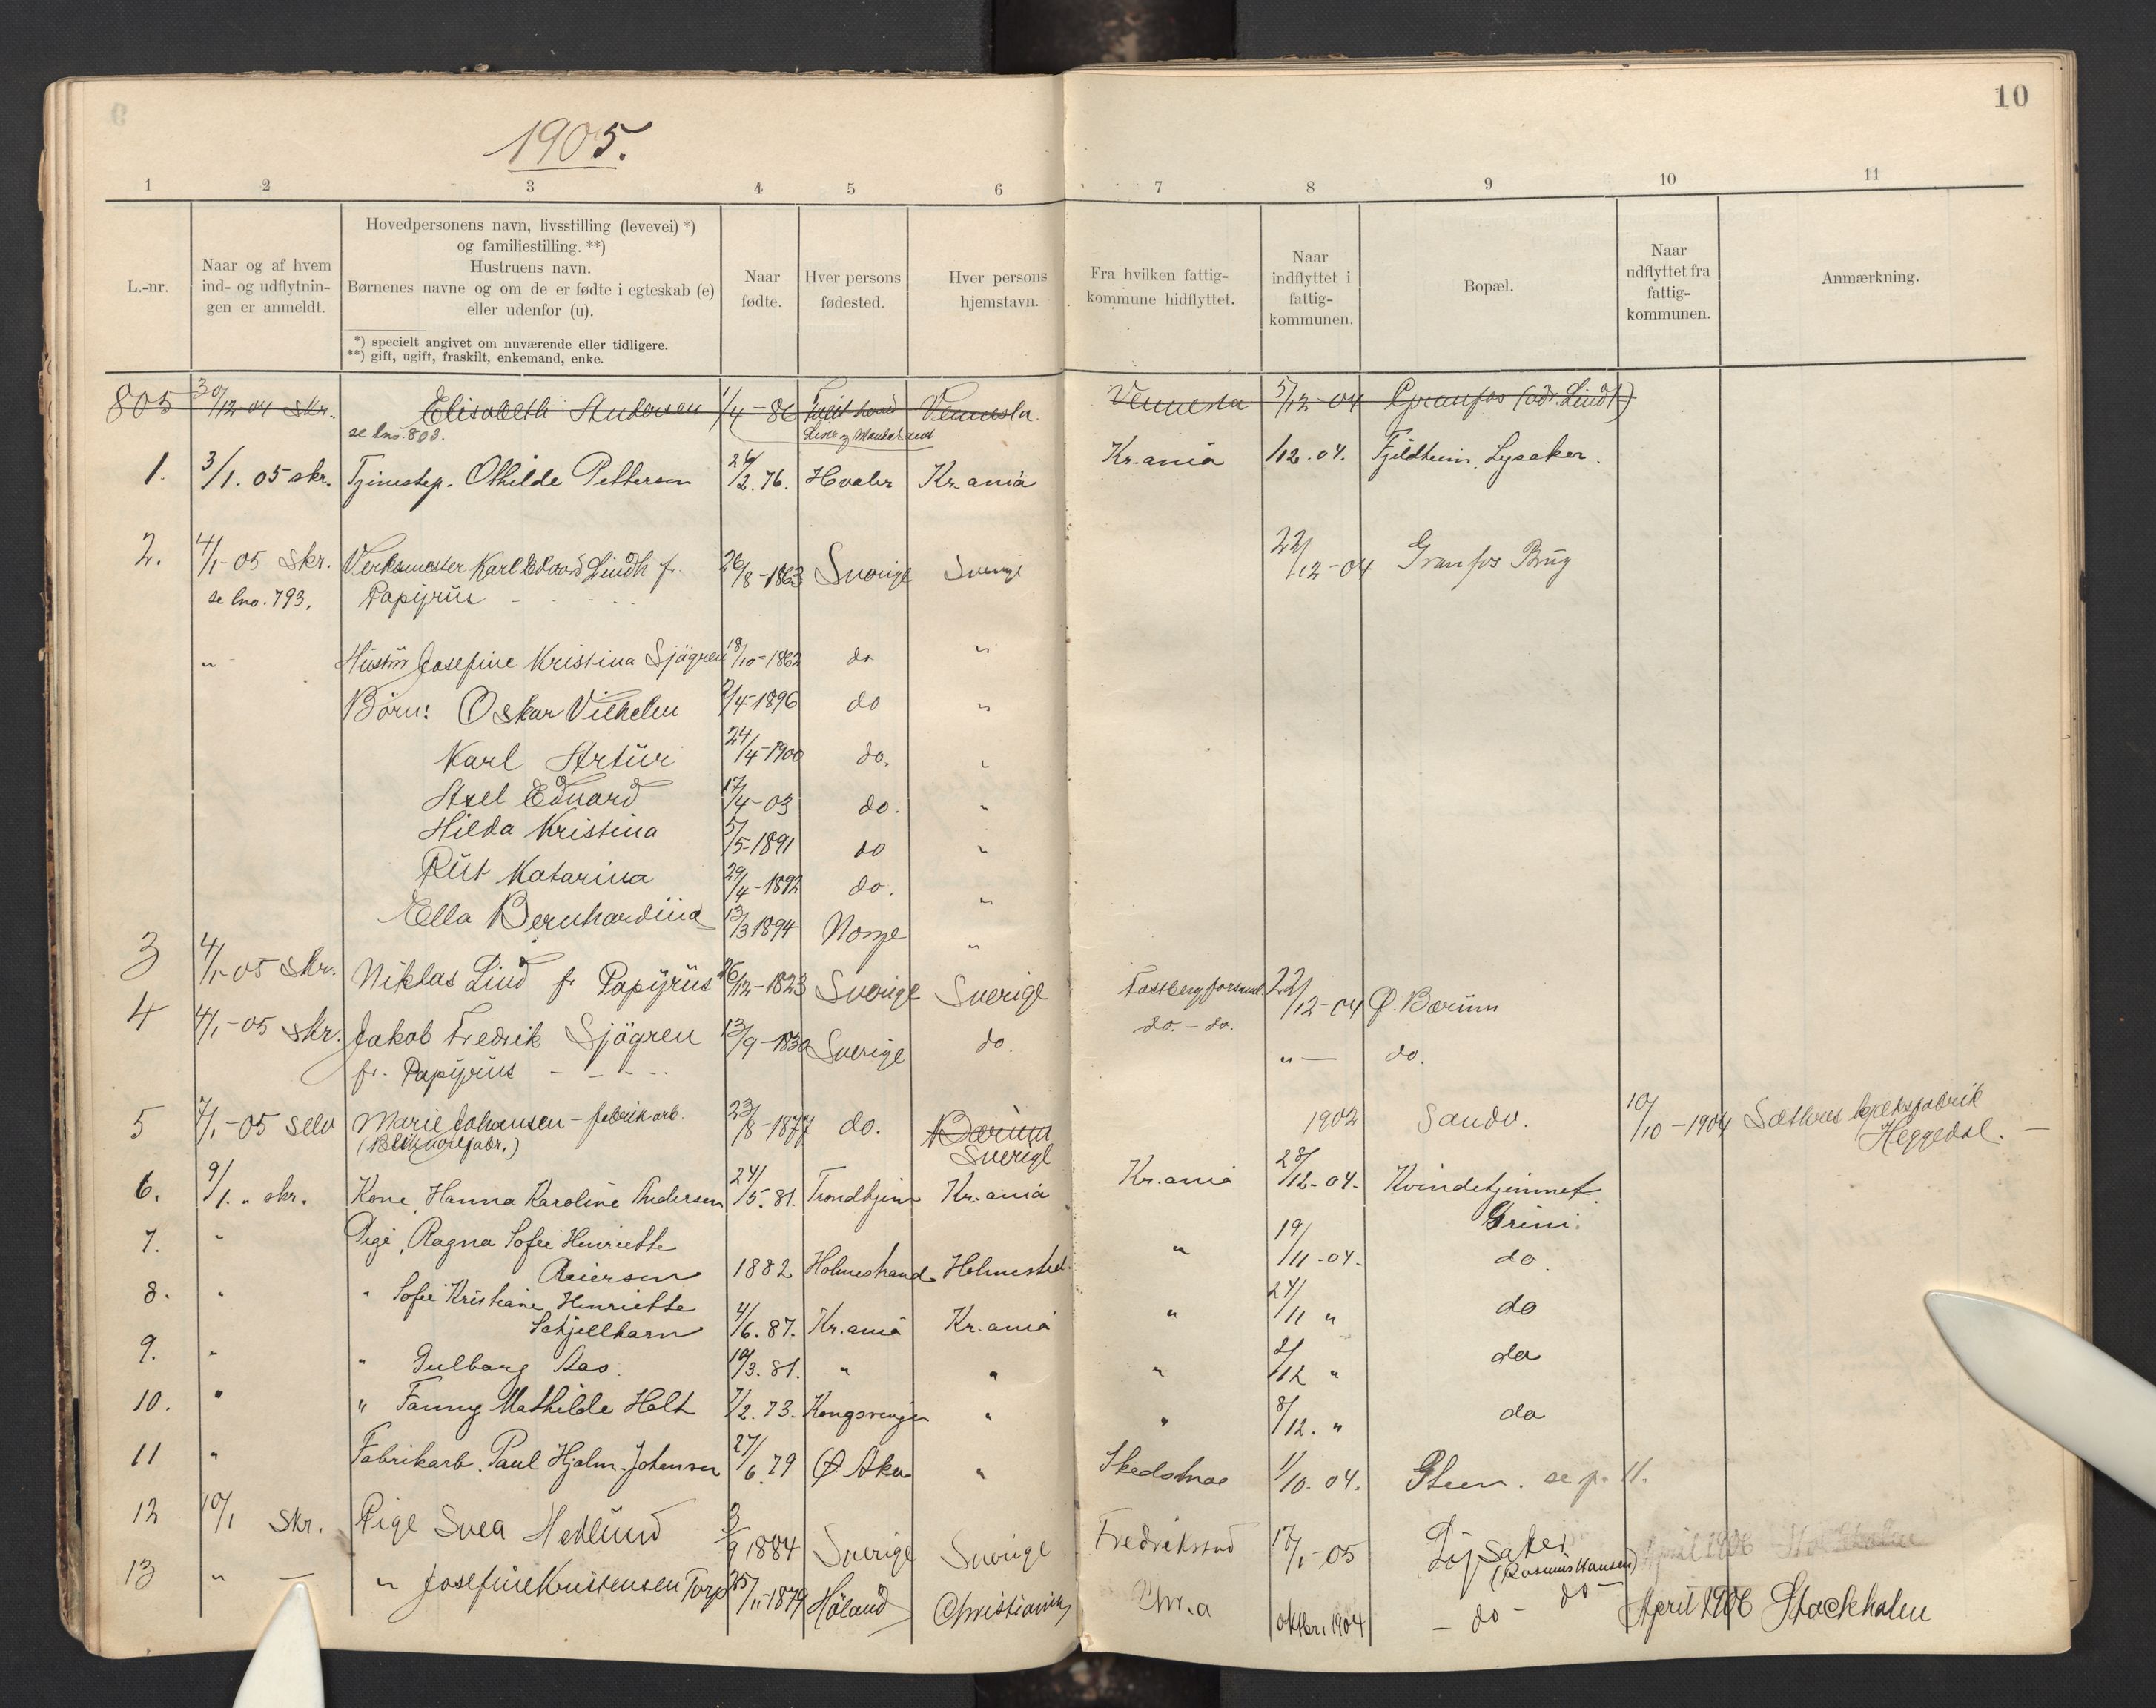 10
1905.
1 2 3 4 5 6 7 8 9 10 11
L.-nr.
Naar og af hvem
ind- og udflytnin-
gen er anmeldt.
Hovedpersonens navn, livsstilling (levevei) *)
og familiestilling. **)
Hustruens navn.
Børnenes navne og om de er fødte i egteskab (e)
eller udenfor (u).
*) specielt angivet om nuværende eller tidligere.
**) gift, ugift, fraskilt, enkemand, enke.
Naar
fødte.
Hver persons
fødested.
Hver persons
hjemstavn.
Fra hvilken fattig-
kommune hidflyttet.
Naar
indflyttet i
fattig-
kommunen.
Bopæl.
Naar
udflyttet fra
fattig-
kommunen.
Anmærkning.
805 30/12-04 skr. Elisabeth Andersen 1/4-86 Vennesla Vennesla 5/12-04 Granfos (adr. Lindt)
se lno. 808. Lister og Mandals amt
1. 3/1. 05 skr. Tjenestep. Othilde Pettersen 26/2.76. Hvaler Kr.ania Kr.ania 1/12.04. Fjeldheim, Lysaker.
2. 4/1-05 skr. Verksmester Karl Edvard Lindh f. 26/8-1863 Sverige Sverige 22/12-04 Granfos Brug
se lno. 793. Papyrus - - - - -
" Hustru Josefine Kristina Sjögren 18/10-1862 do "
Børn: Oskar Vilhelm 2/4-1896 do "
Karl Artur 24/4-1900 do. "
Axel Edvard 17/4-03 do. "
Hilda Kristina 5/5-1891 do "
Rut Katarina 29/4-1892 do. "
Ella Bernhardina 13/3 1894 Norge "
3 4/1-05 skr. Niklas Lind fr Papyrus 26/12-1823 Sverige Sverige Fassberg forsaml. 22/12-04 Ø. Bærum
4 4/1-05 skr. Jakob Fredrik Sjögren 13/9-1830 Sverige do. do. - do. " — do.
fr. Papyrus - - - -
5 7/1-05 selv Marie Johansen - fabrikarb. 23/8-1877 do. Bærum 1902 Sandv. 10/10-1904 Sætres kjæksfabrik
Sverige Heggedal. —
6. 9/1. " skr. Kone, Hanna Karoline Andersen 24/5.81. Trondhjem Kr.ania Kr.ania 28/12-04. Kvindehjemmet
Grini.
7. " Pige, Ragna Sofie Henriette
Reiersen 1882 Holmestrand Holmestrd. " 19/11-04. do.
8. " " Sofie Kristiane Henriette
Schjellharn 4/6.87. Kr.ania Kr.ania " 24/11 " do
9. " " Gulborg Aas. 10/3.81. " " " 2/12 " do
10. " " Fanny Mathilde Holt 7/2.73. Kongsvinger " " 8/12. " do
11 " Fabrikarb. Paul Hjalm. Johansen 27/6.79 Ø. Aker " Skedsmoe 1/10.04. Steen. se p. 11.
12 10/1 skr. Pige Svea Hedlund 3/9 1884 Sverige Sverige Fredriksstad 17/1-05 Lysaker April 1906 Stockholm
(Rasmus Hansen)
13 " — " Josefine Kristensen Torp 25/11-1879 Høland Christiania Chr.a oktbr. 1904 - do - do - April 1906 Stockholm